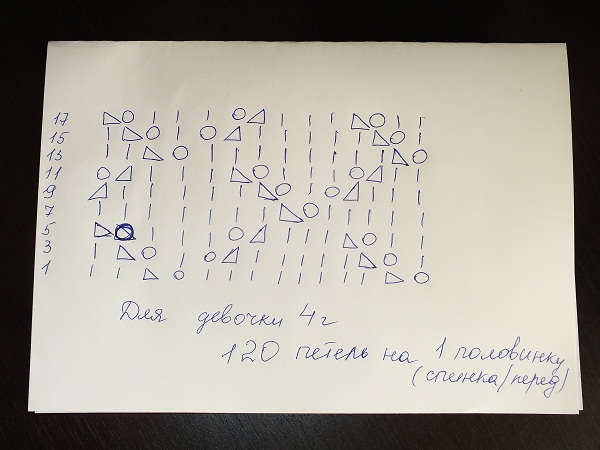 17
15
13
11
9
7
5
3
1
Для девочки 4г
120 петель на 1 половинку
(спинка/перед)